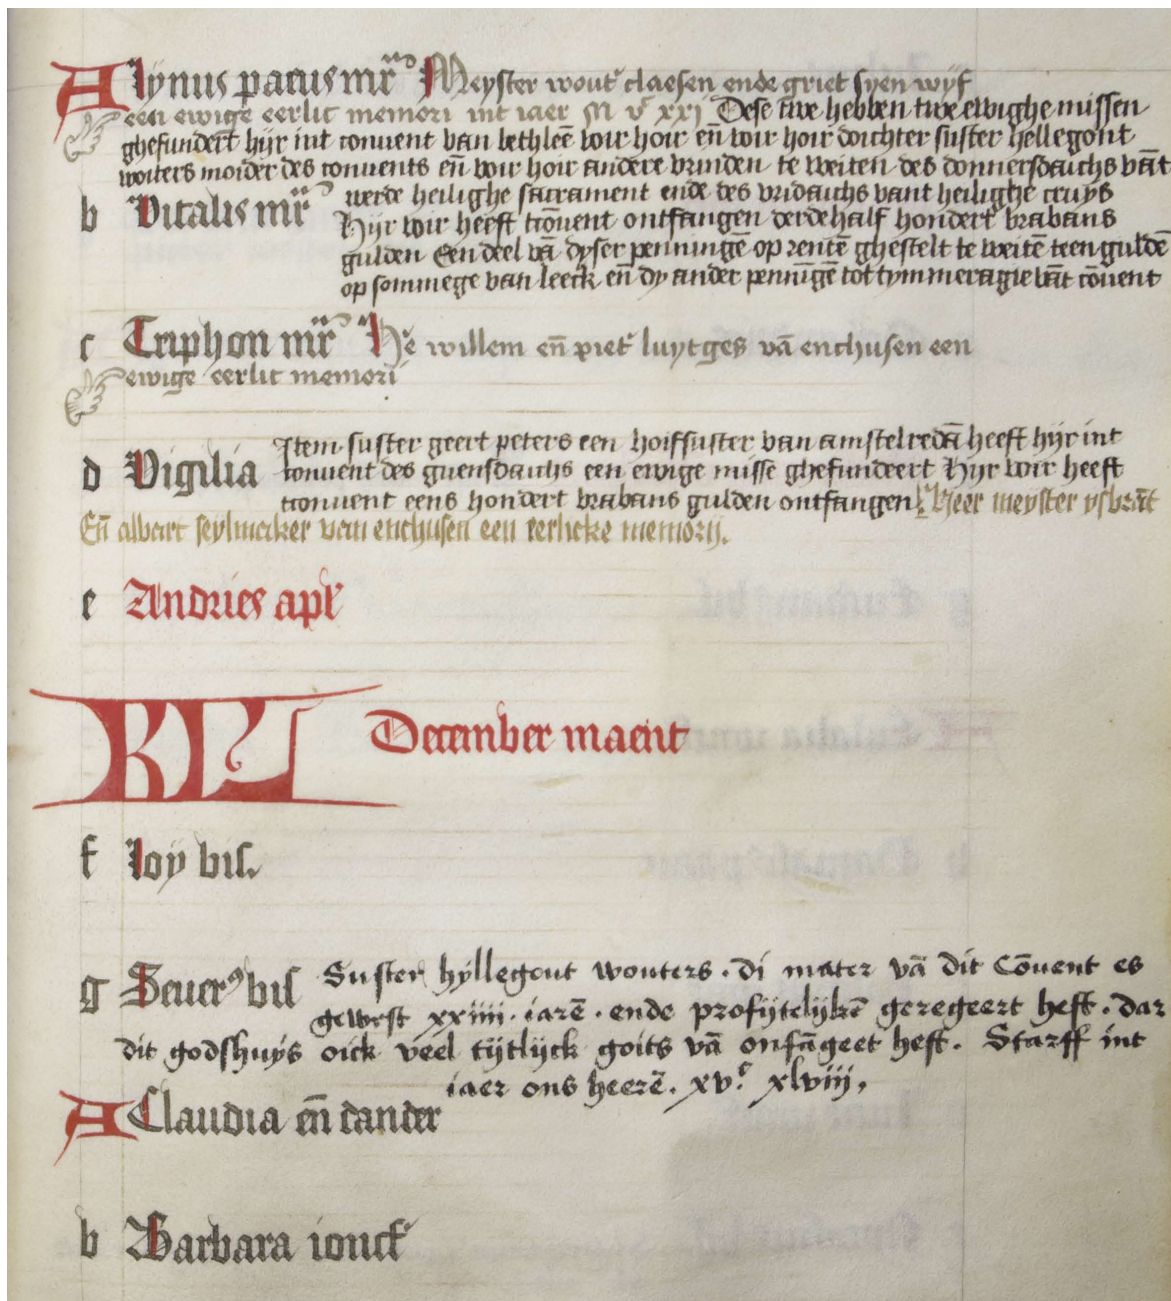 A lynus paeus mr̄ Meyster wout claesen ende griet syen wyf
een ewige eerlic memori int iaer M vc xxi Dese twe hebben twe ewighe missen
ghefundert hyr int convent van bethleē voir hoir en̄ voir hoir doichter suster hellegont
woiters moider des convents en̄ voir hoir andere vrinden te weiten des donnersdaichs vāt
werde heilighe sacrament ende des vridaichs vant heilighe cruys
b Vitalis mr̄
Hyr voir heeft tcōvent ontfangen derdehalf hondert brabans
gulden Een deel vā dyser penningē op rentē ghestelt te weitē teen guldē
op sommege van leeck en̄ dy ander pennīgē tot tymmeragie vāt cōvent
c Triphon mr̄ He willem en̄ piet luytges vā enchusen een
ewige eerlic memori
Item suster geert peters een hoifsuster van amstelredā heeft hyr int
d Vigilia convent des guensdaichs een ewige misse ghefundeert Hyr voir heeft
tconvent eens hondert brabans gulden ontfangen Heer meyster ysbrāt
En̄ albart seylmaker van enchusen een eerlicke memorij.
e Andries apl
KL December maent
f loy bis.
g Seuer⁹ bis Suster hyllegont wouters . di mater vā dit Cōvent es
gewest xxiiii . iarē . ende profijtelijkē geregeert heft . dar
dit godshuys oick veel tijtlijck goits vā onfāgeet heft . Starff int
iaer ons heerē . xvc xlviij,
A Claudia en̄ dander
b Barbara ioncf